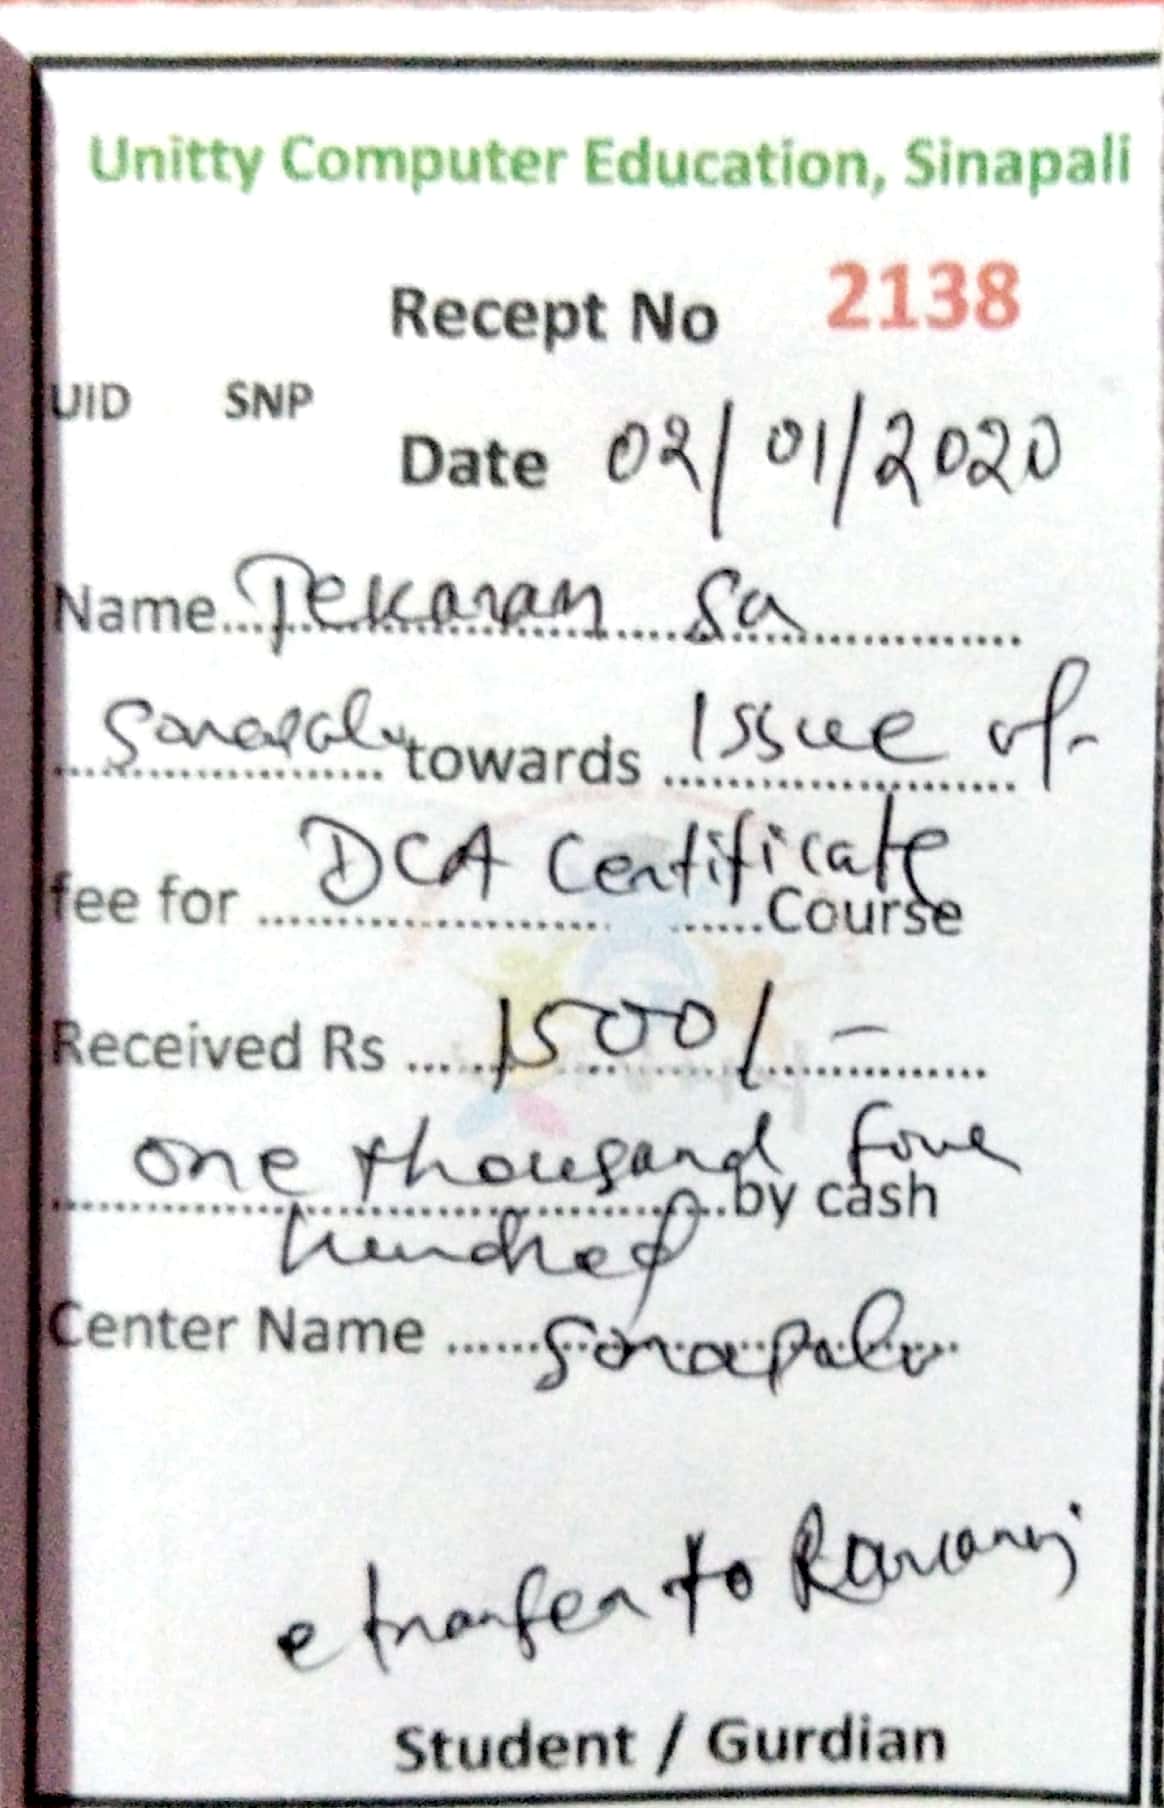 Unitty Computer Education, Sinapali
Recept No 2138
UID SNP
Date 02/01/2020
Name....Tekaram Sa....
....Sinapali towards Issue of
fee for DCA Certificate Course
Received Rs ....1500/-....
one thousand five by cash
hundred
Center Name ......Sinapali
e transfer to
Student / Gurdian